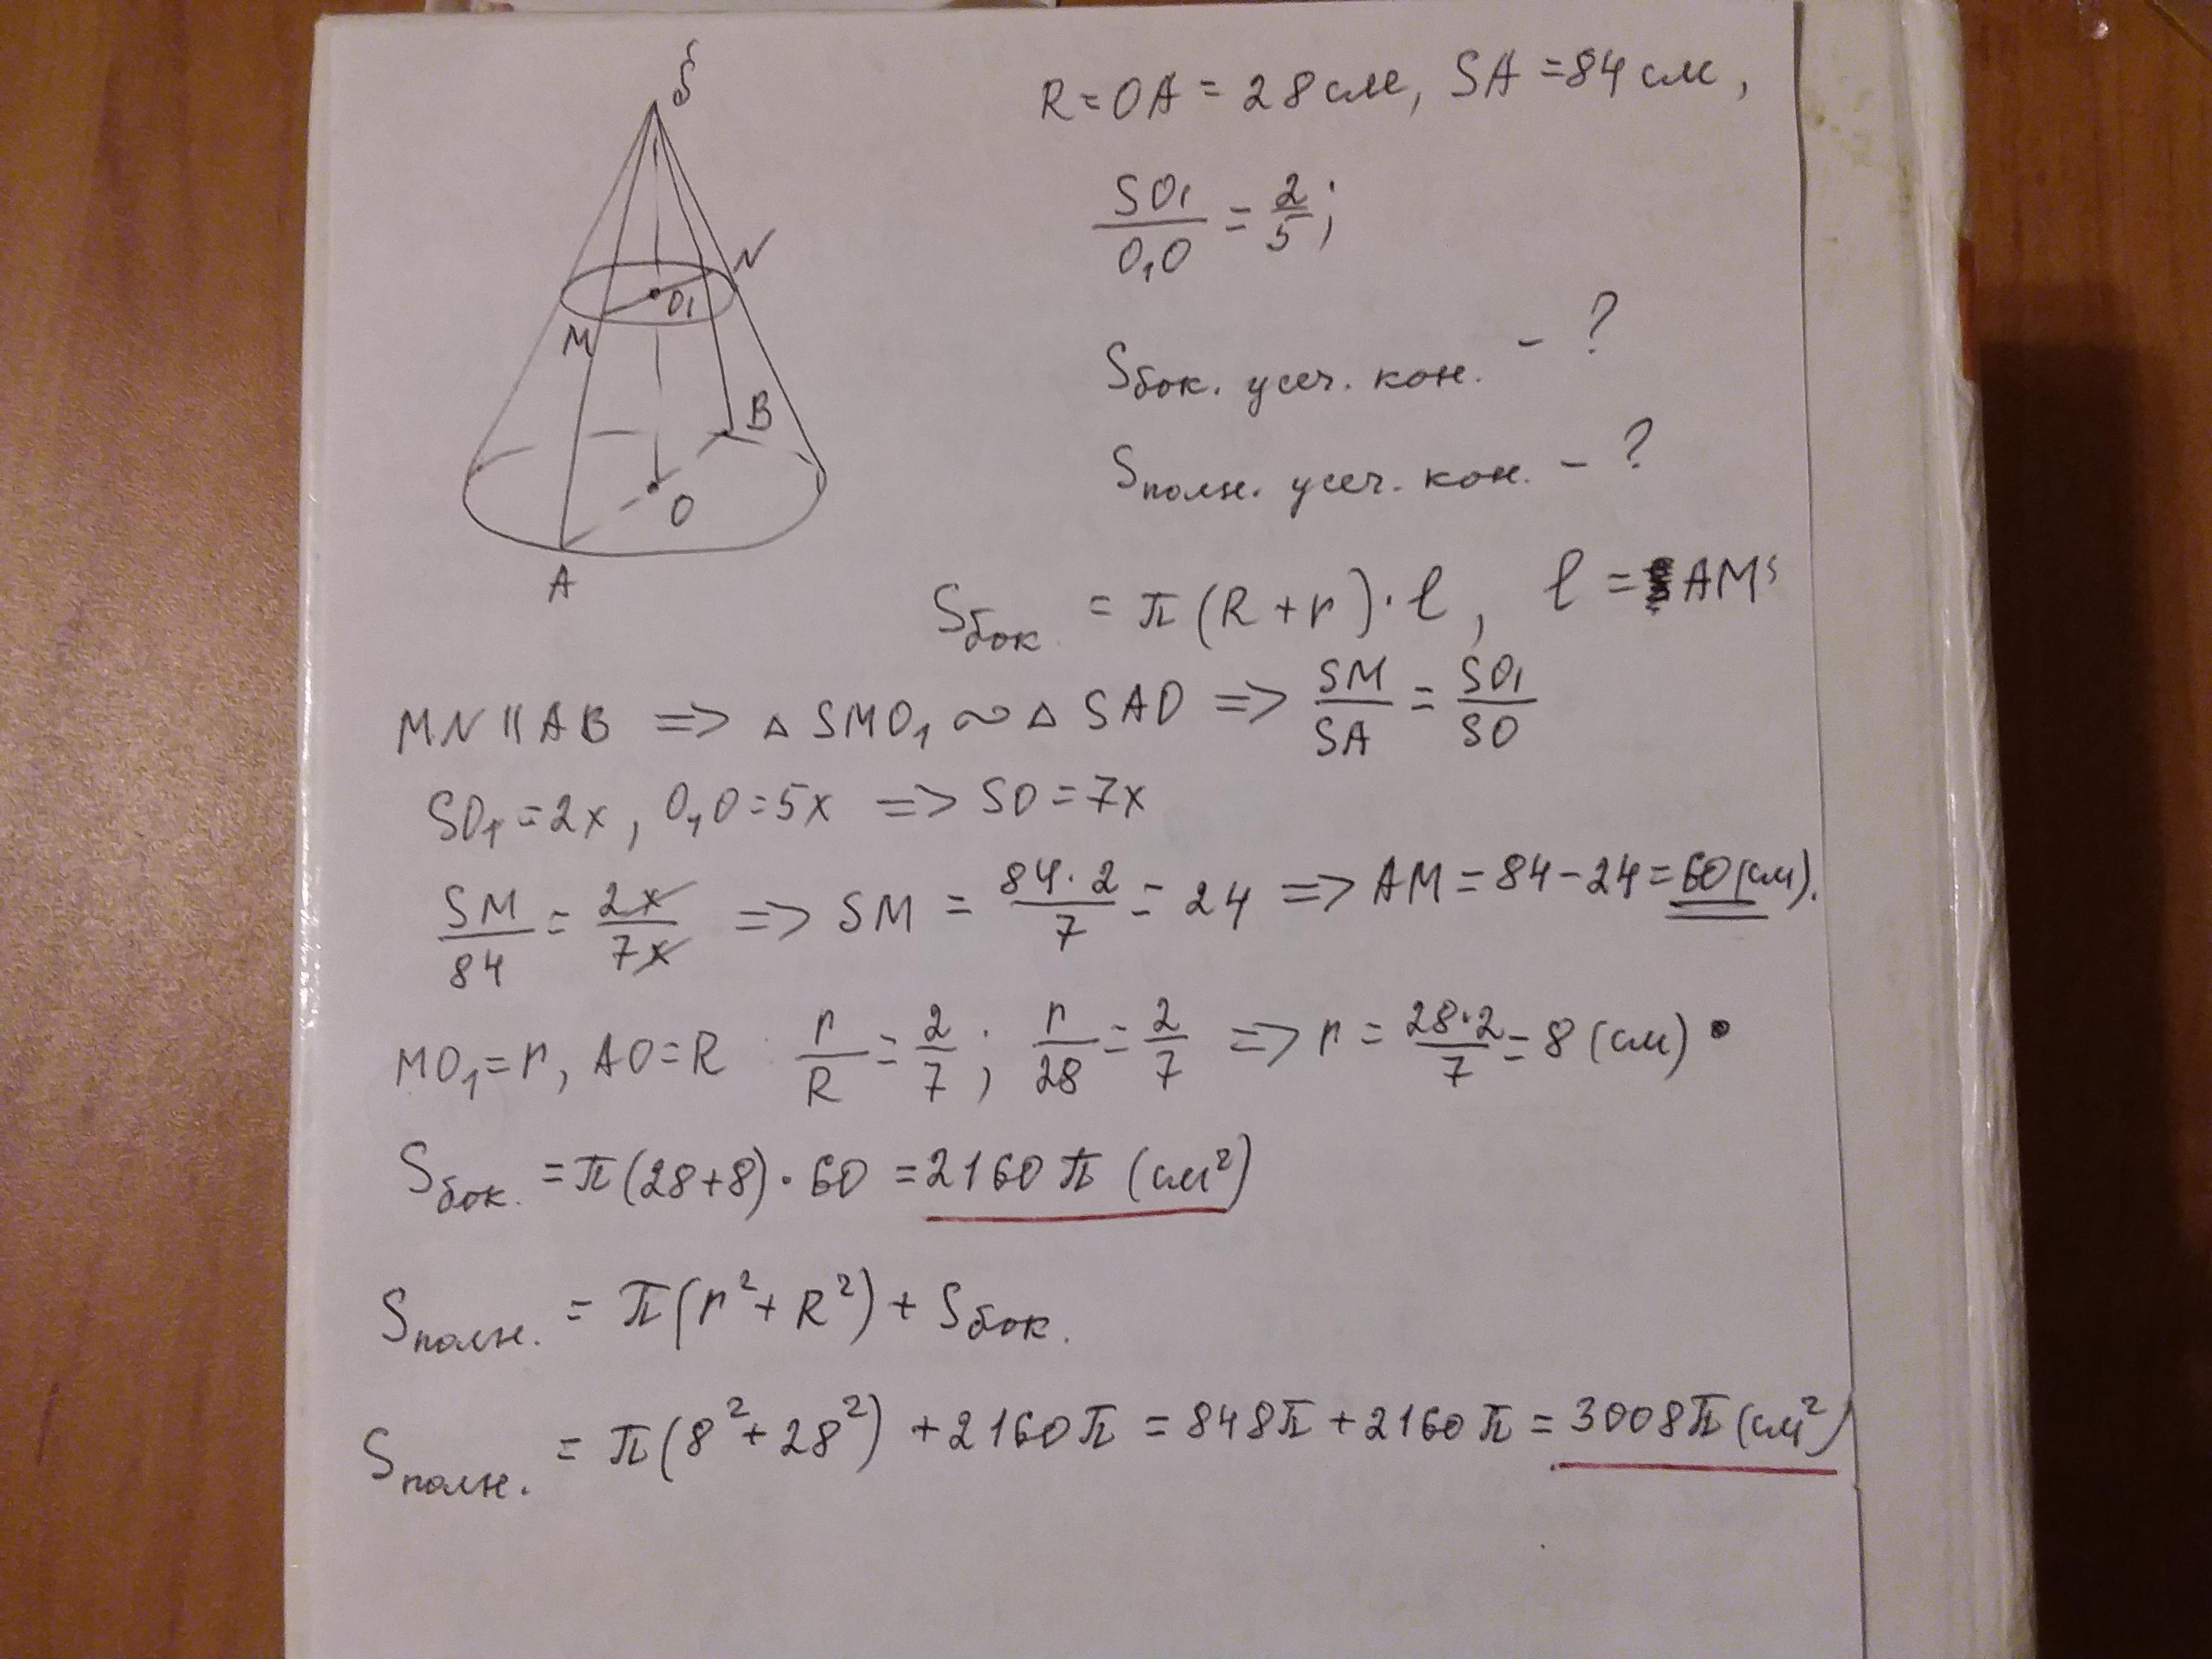 S
N
O₁
M
B
O
A
R = OA = 28 см, SA = 84 см,
SO₁/O₁O = 2/5;
Sбок. усеч. кон. – ?
Sполн. усеч. кон. – ?
Sбок = π(R+r)·l, l = AM
MN || AB => △SMO₁ ∾ △SAO => SM/SA = SO₁/SO
SO₁ = 2x, O₁O = 5x => SO = 7x
SM/84 = 2x/7x => SM = 84·2/7 = 24 => AM = 84 – 24 = 60 (см).
MO₁ = r, AO = R r/R = 2/7; r/28 = 2/7 => r = 28·2/7 = 8 (см).
Sбок. = π(28+8)·60 = 2160π (см²)
Sполн. = π(r²+R²) + Sбок.
Sполн. = π(8²+28²) + 2160π = 848π + 2160π = 3008π (см²)